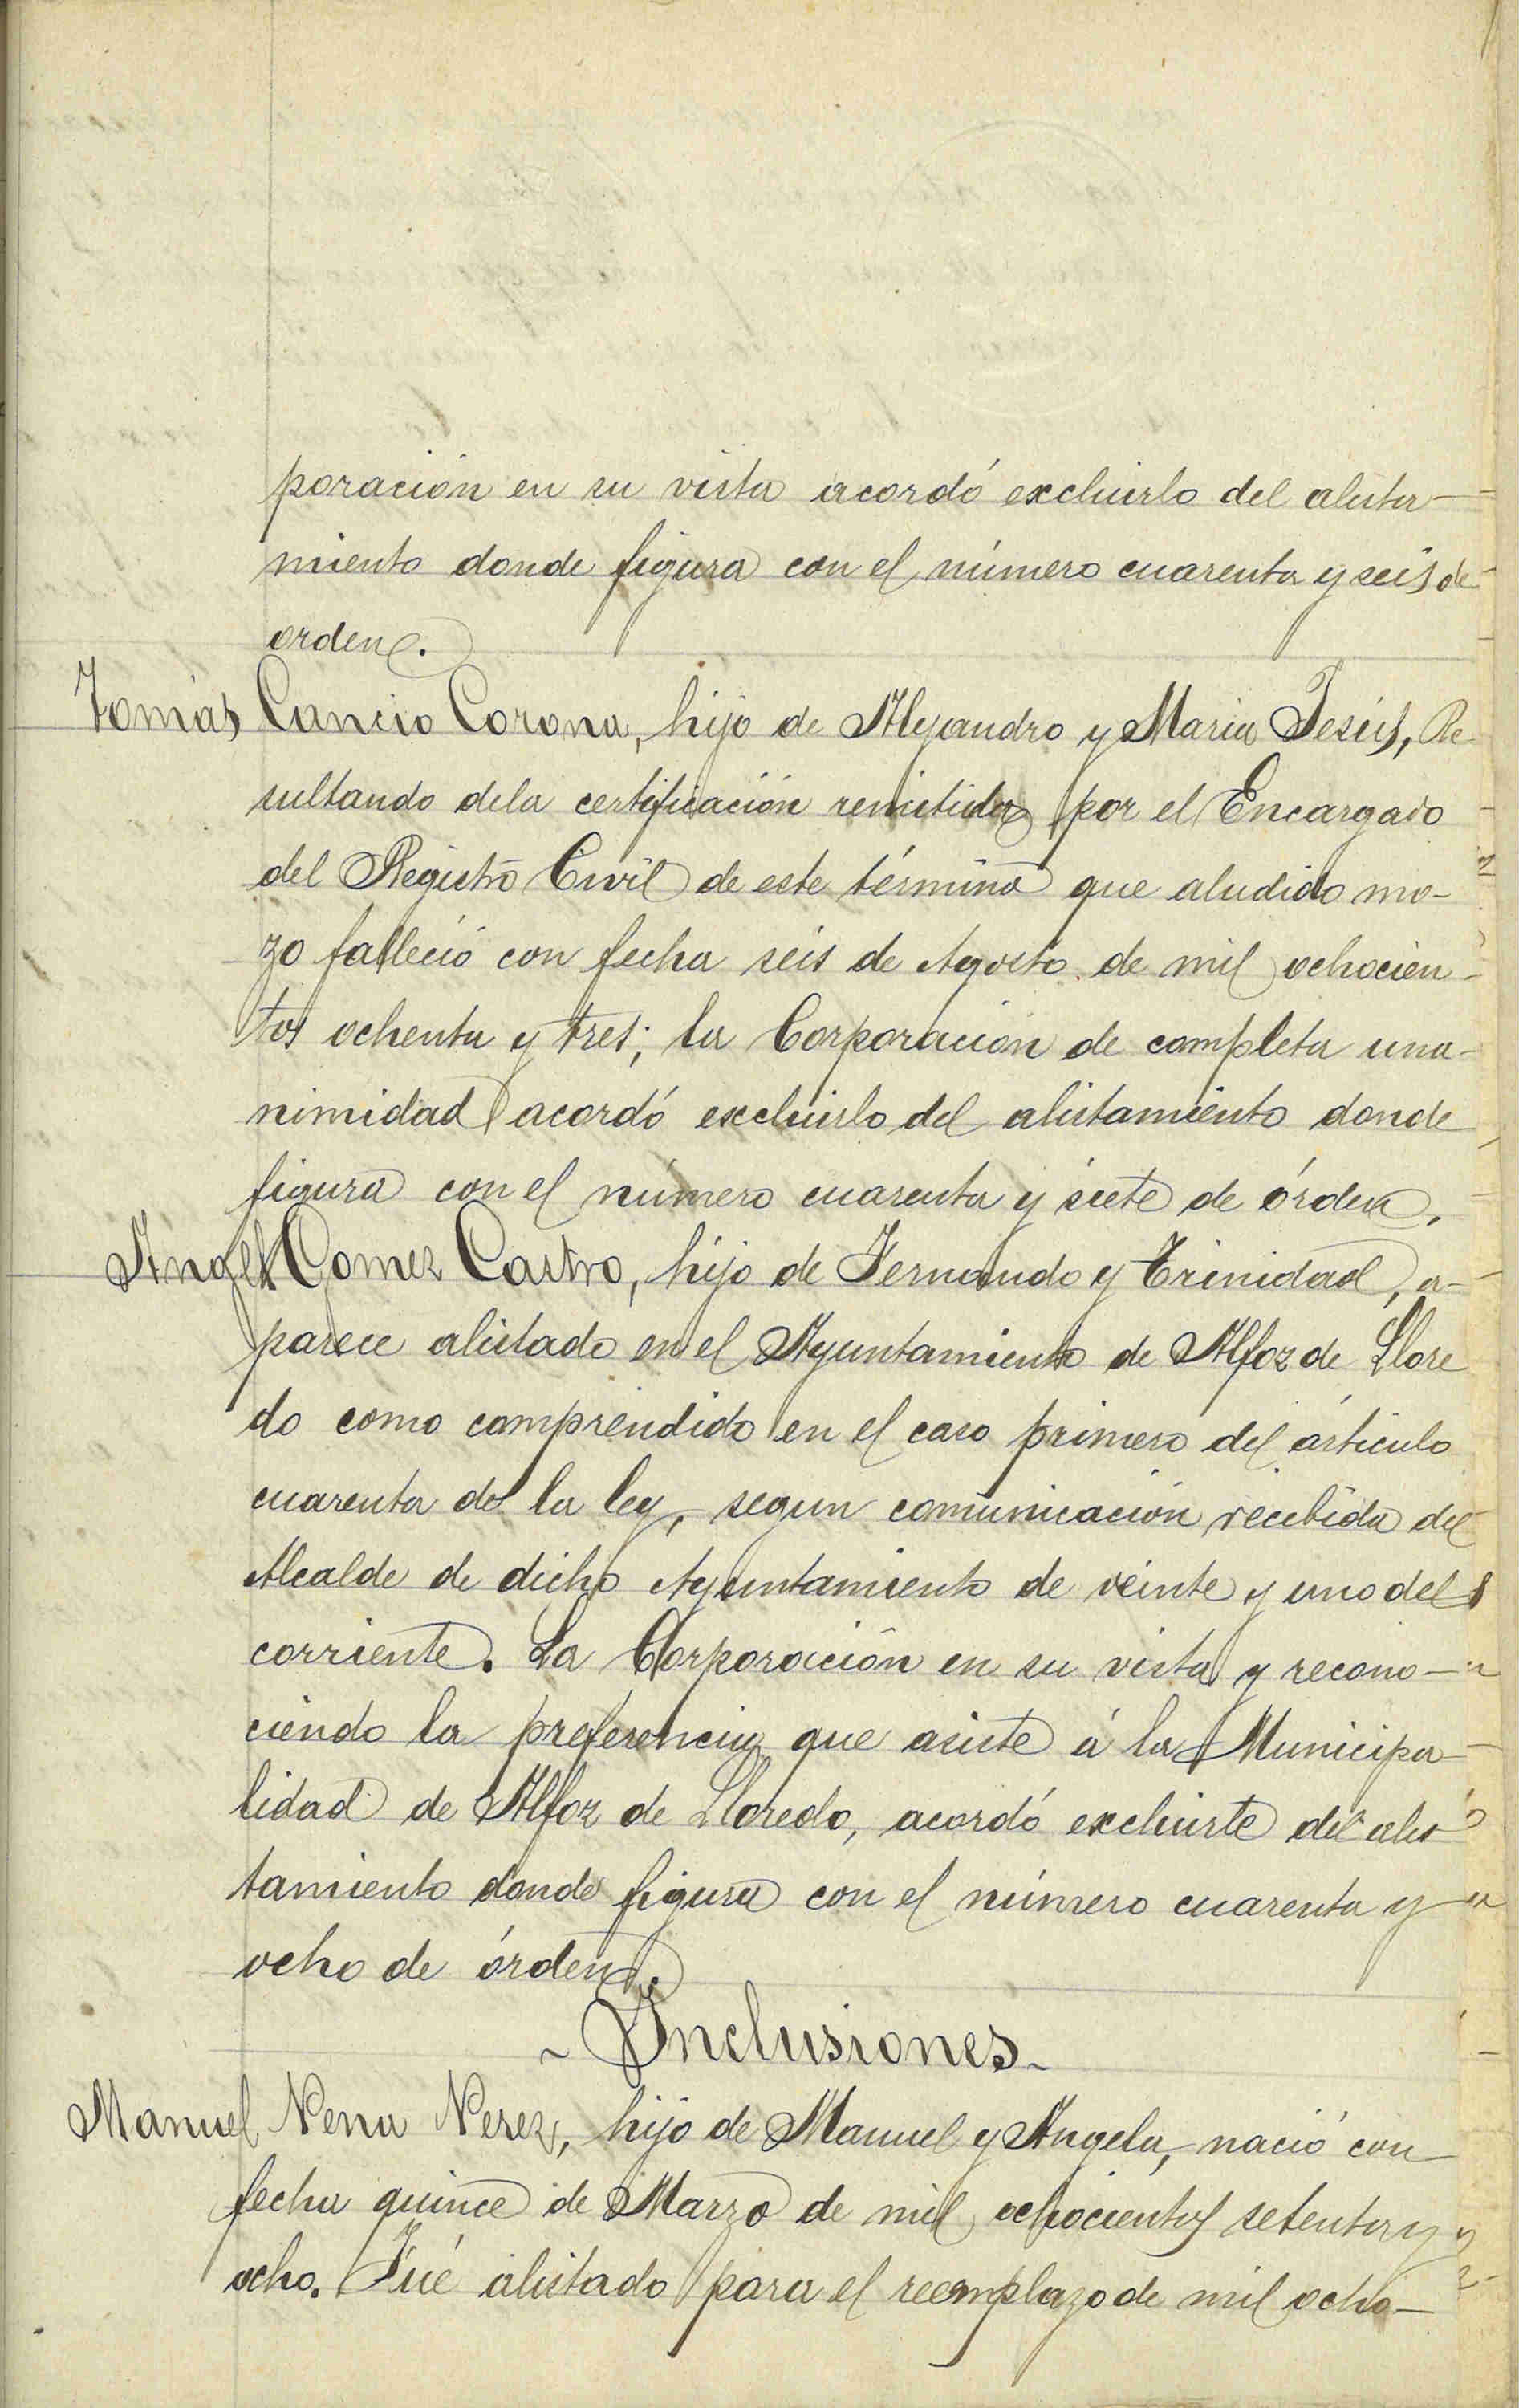 poración en su vista acordó excluirlo del alista-
miento donde figura con el número cuarenta y seis de
orden.
Tomás Cancio Corona, hijo de Alejandro y Maria Jesús, Re
sultando dela certificación remitida por el Encargado
del Registro Civil de este término que aludido mo-
zo falleció con fecha seis de Agosto de mil ochocien-
tos ochenta y tres; la Corporación de completa una-
nimidad acordó excluirlo del alistamiento donde
figura con el número cuarenta y siete de órden.
Angel Gomez Castro, hijo de Fernando y Trinidad, a-
parece alistado en el Ayuntamiento de Alfoz de Llore
do como comprendido en el caso primero del artículo
cuarenta de la ley, segun comunicación recibida del
Alcalde de dicho Ayuntamiento de veinte y uno del
corriente. La Corporación en su vista y recono-
ciendo la preferencia que asiste á la Municipa-
lidad de Alfoz de Lloredo, acordó excluirle del alis
tamiento donde figura con el número cuarenta y
ocho de órden.
~ Inclusiones ~
Manuel Pena Perez, hijo de Manuel y Angela, nació con
fecha quince de Marzo de mil ochocientos setenta y
ocho. Fué alistado para el reemplazo de mil ocho-